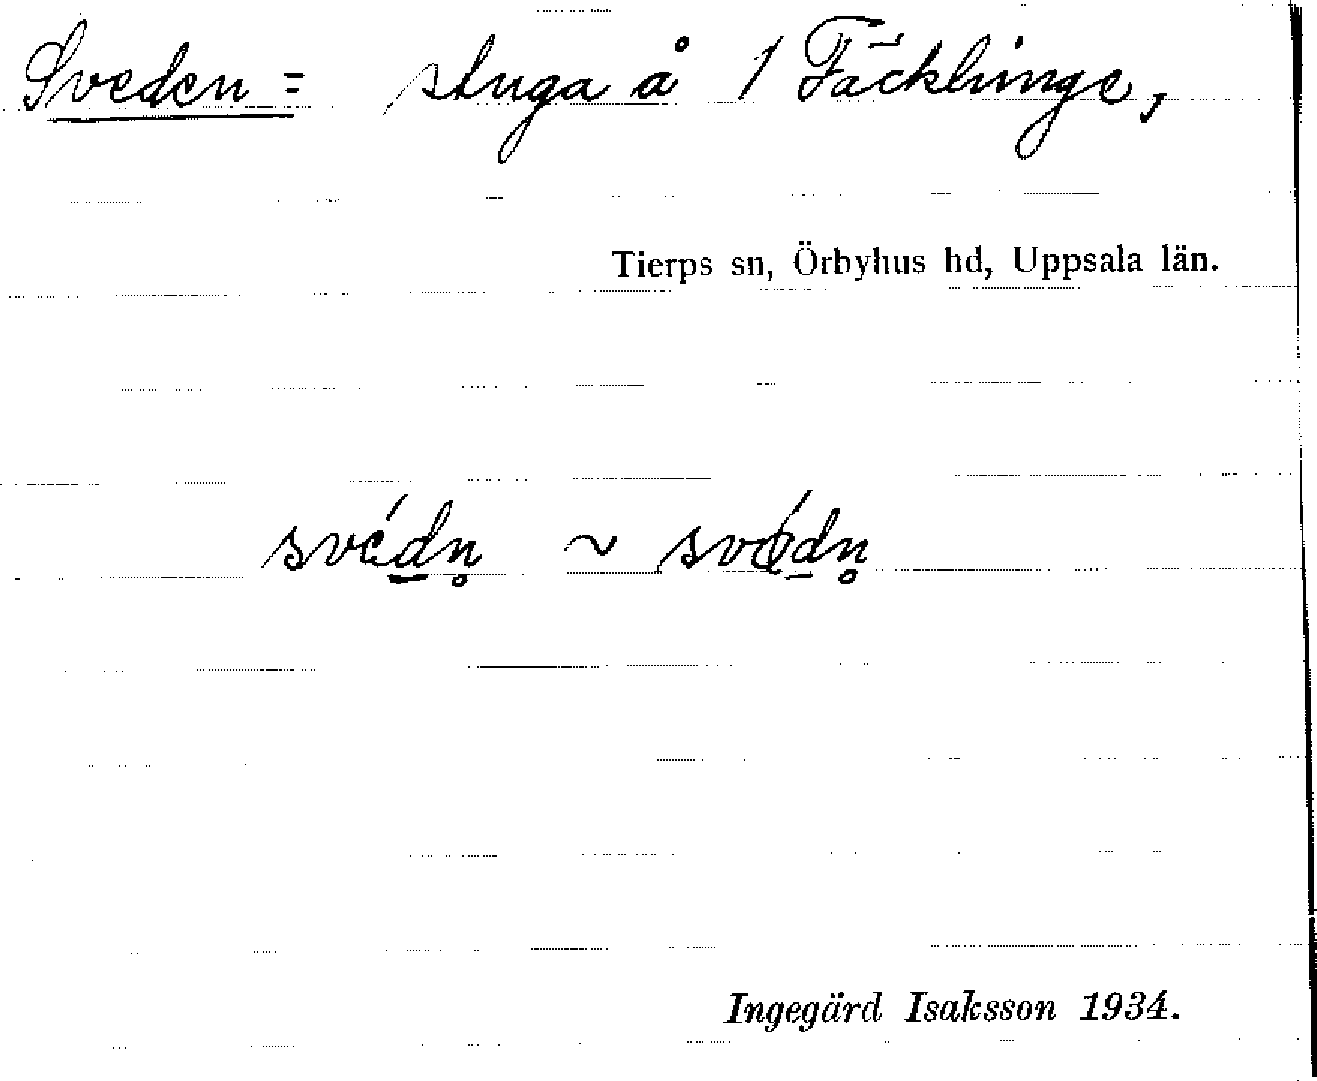 Sveden = stuga å 1 Fäcklinge,
Tierps sn, Örbyhus hd, Uppsala län.
své́d̲n̥ ~ svǿd̲n̥
Ingegärd Isaksson 1934.